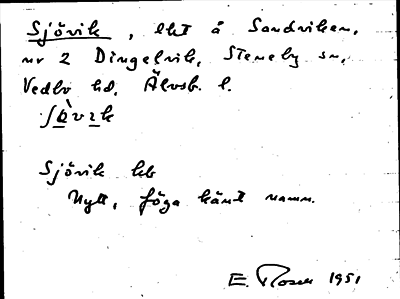 Sjövik, lht å Sandviken,
nr 2 Dingelvik, Steneby sn,
Vedbo hd, Älvsb. l.

Sjövik hb
Nytt, föga känt namn.
E. Rosell 1951